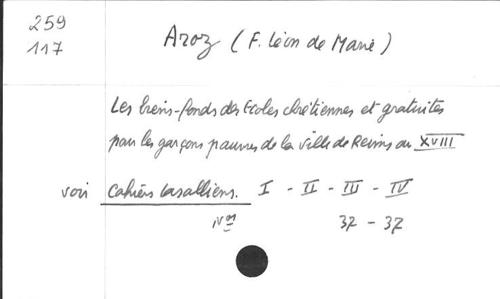 259
117
Aroz (F. Léon de Marie)
Les biens-fonds des Ecoles chrétiennes et gratuites
pour les garçons pauvres de la ville de Reims au XVIII
voir Cahiers lasalliens. I - II - III - IV
Nos 37 - 37